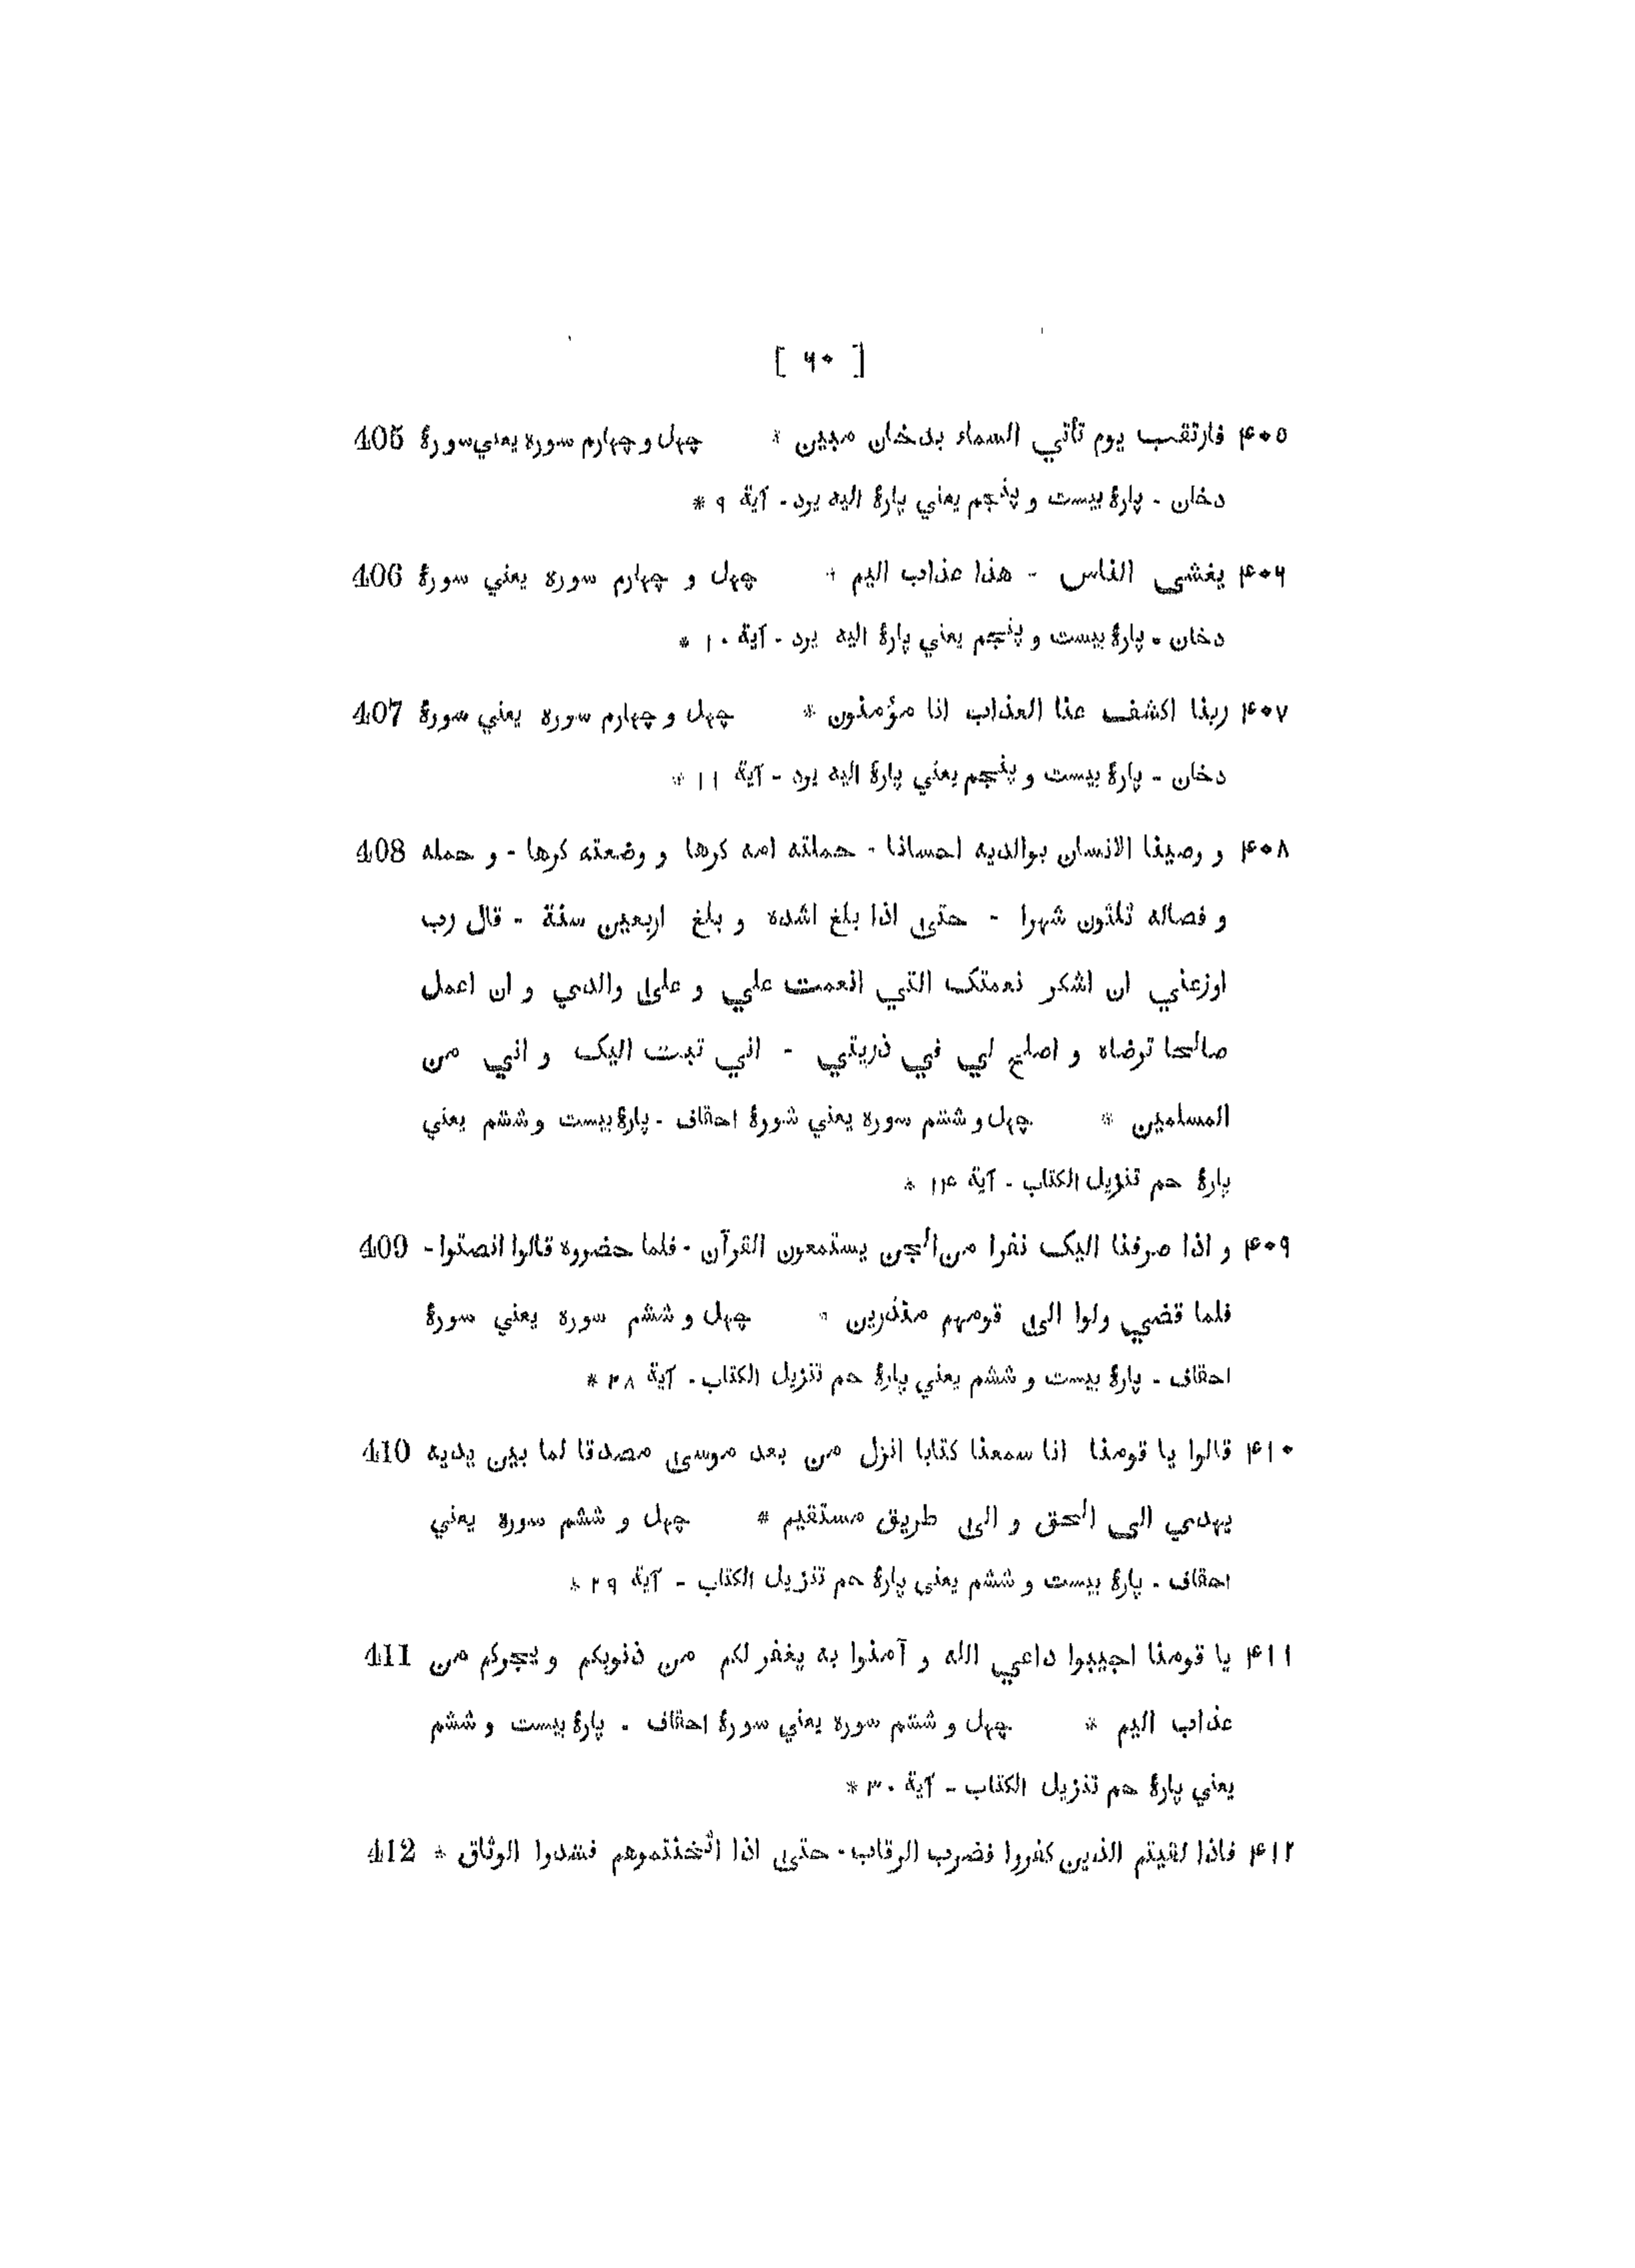 [ ۶۰ ]
۴۰۵ فارتقب يوم تأتي السماء بدخان مبين * چهل و چهارم سوره يعني سورهٔ 405
دخان - پارهٔ بيست و پنجم يعني پارهٔ اليه يرد - آية ۹ *
۴۰۶ يغشى الناس - هذا عذاب اليم * چهل و چهارم سوره يعني سورهٔ 406
دخان - پارهٔ بيست و پنجم يعني پارهٔ اليه يرد - آية ۱۰ *
۴۰۷ ربنا اكشف عنا العذاب انا مؤمنون * چهل و چهارم سوره يعني سورهٔ 407
دخان - پارهٔ بيست و پنجم يعني پارهٔ اليه يرد - آية ۱۱ *
۴۰۸ و وصينا الانسان بوالديه احسانا - حملته امه كرها و وضعته كرها - و حمله 408
و فصاله ثلثون شهرا - حتى اذا بلغ اشده و بلغ اربعين سنة - قال رب
اوزعني ان اشكر نعمتك التي انعمت علي و على والدي و ان اعمل
صالحا ترضاه و اصلح لي في ذريتي - اني تبت اليك و اني من
المسلمين * چهل و ششم سوره يعني شورهٔ احقاف - پارهٔ بيست و ششم يعني
پارهٔ حم تنزيل الكتاب - آية ۱۴ *
۴۰۹ و اذا صرفنا اليك نفرا من الجن يستمعون القرآن - فلما حضروه قالوا انصتوا - 409
فلما قضي ولوا الى قومهم منذرين * چهل و ششم سوره يعني سورهٔ
احقاف - پارهٔ بيست و ششم يعني پارهٔ حم تنزيل الكتاب - آية ۲۸ *
۴۱۰ قالوا يا قومنا انا سمعنا كتابا انزل من بعد موسى مصدقا لما بين يديه 410
يهدي الى الحق و الى طريق مستقيم * چهل و ششم سوره يعني
احقاف - پارهٔ بيست و ششم يعني پارهٔ حم تنزيل الكتاب - آية ۲۹ *
۴۱۱ يا قومنا اجيبوا داعي الله و آمنوا به يغفر لكم من ذنوبكم و يجركم من 411
عذاب اليم * چهل و ششم سوره يعني سورهٔ احقاف - پارهٔ بيست و ششم
يعني پارهٔ حم تنزيل الكتاب - آية ۳۰ *
۴۱۲ فاذا لقيتم الذين كفروا فضرب الرقاب - حتى اذا اثخنتموهم فشدوا الوثاق * 412